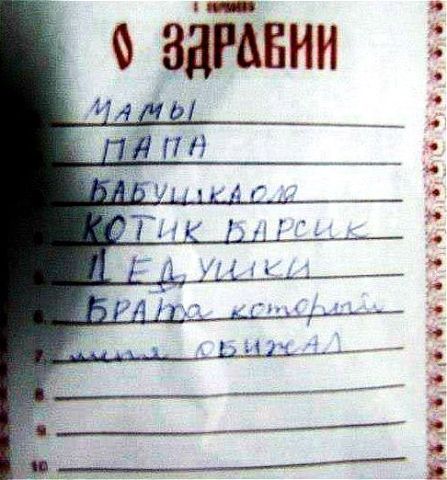 О ЗДРАВИИ
МАМЫ
ПАПА
БАБУШКА ОЛЯ
КОТИК БАРСИК
5. ДЕДУШКИ
6. БРАТА который
7. меня ОБИЖАЛ
8.
9.
10